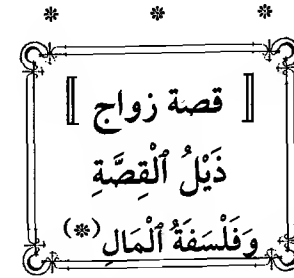 * * *
[[ قصة زواج ]]
ذَيْلُ ٱلْقِصَّةِ
وَفَلْسَفَةُ ٱلْمَالِ (*)